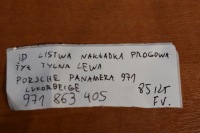 LISTWA NAKŁADKA PROGOWA
TYŁ TYLNA LEWA
PORSCHE PANAMERA 971
LUXORBEIGE
971 863 405
85 ZŁ
FV.